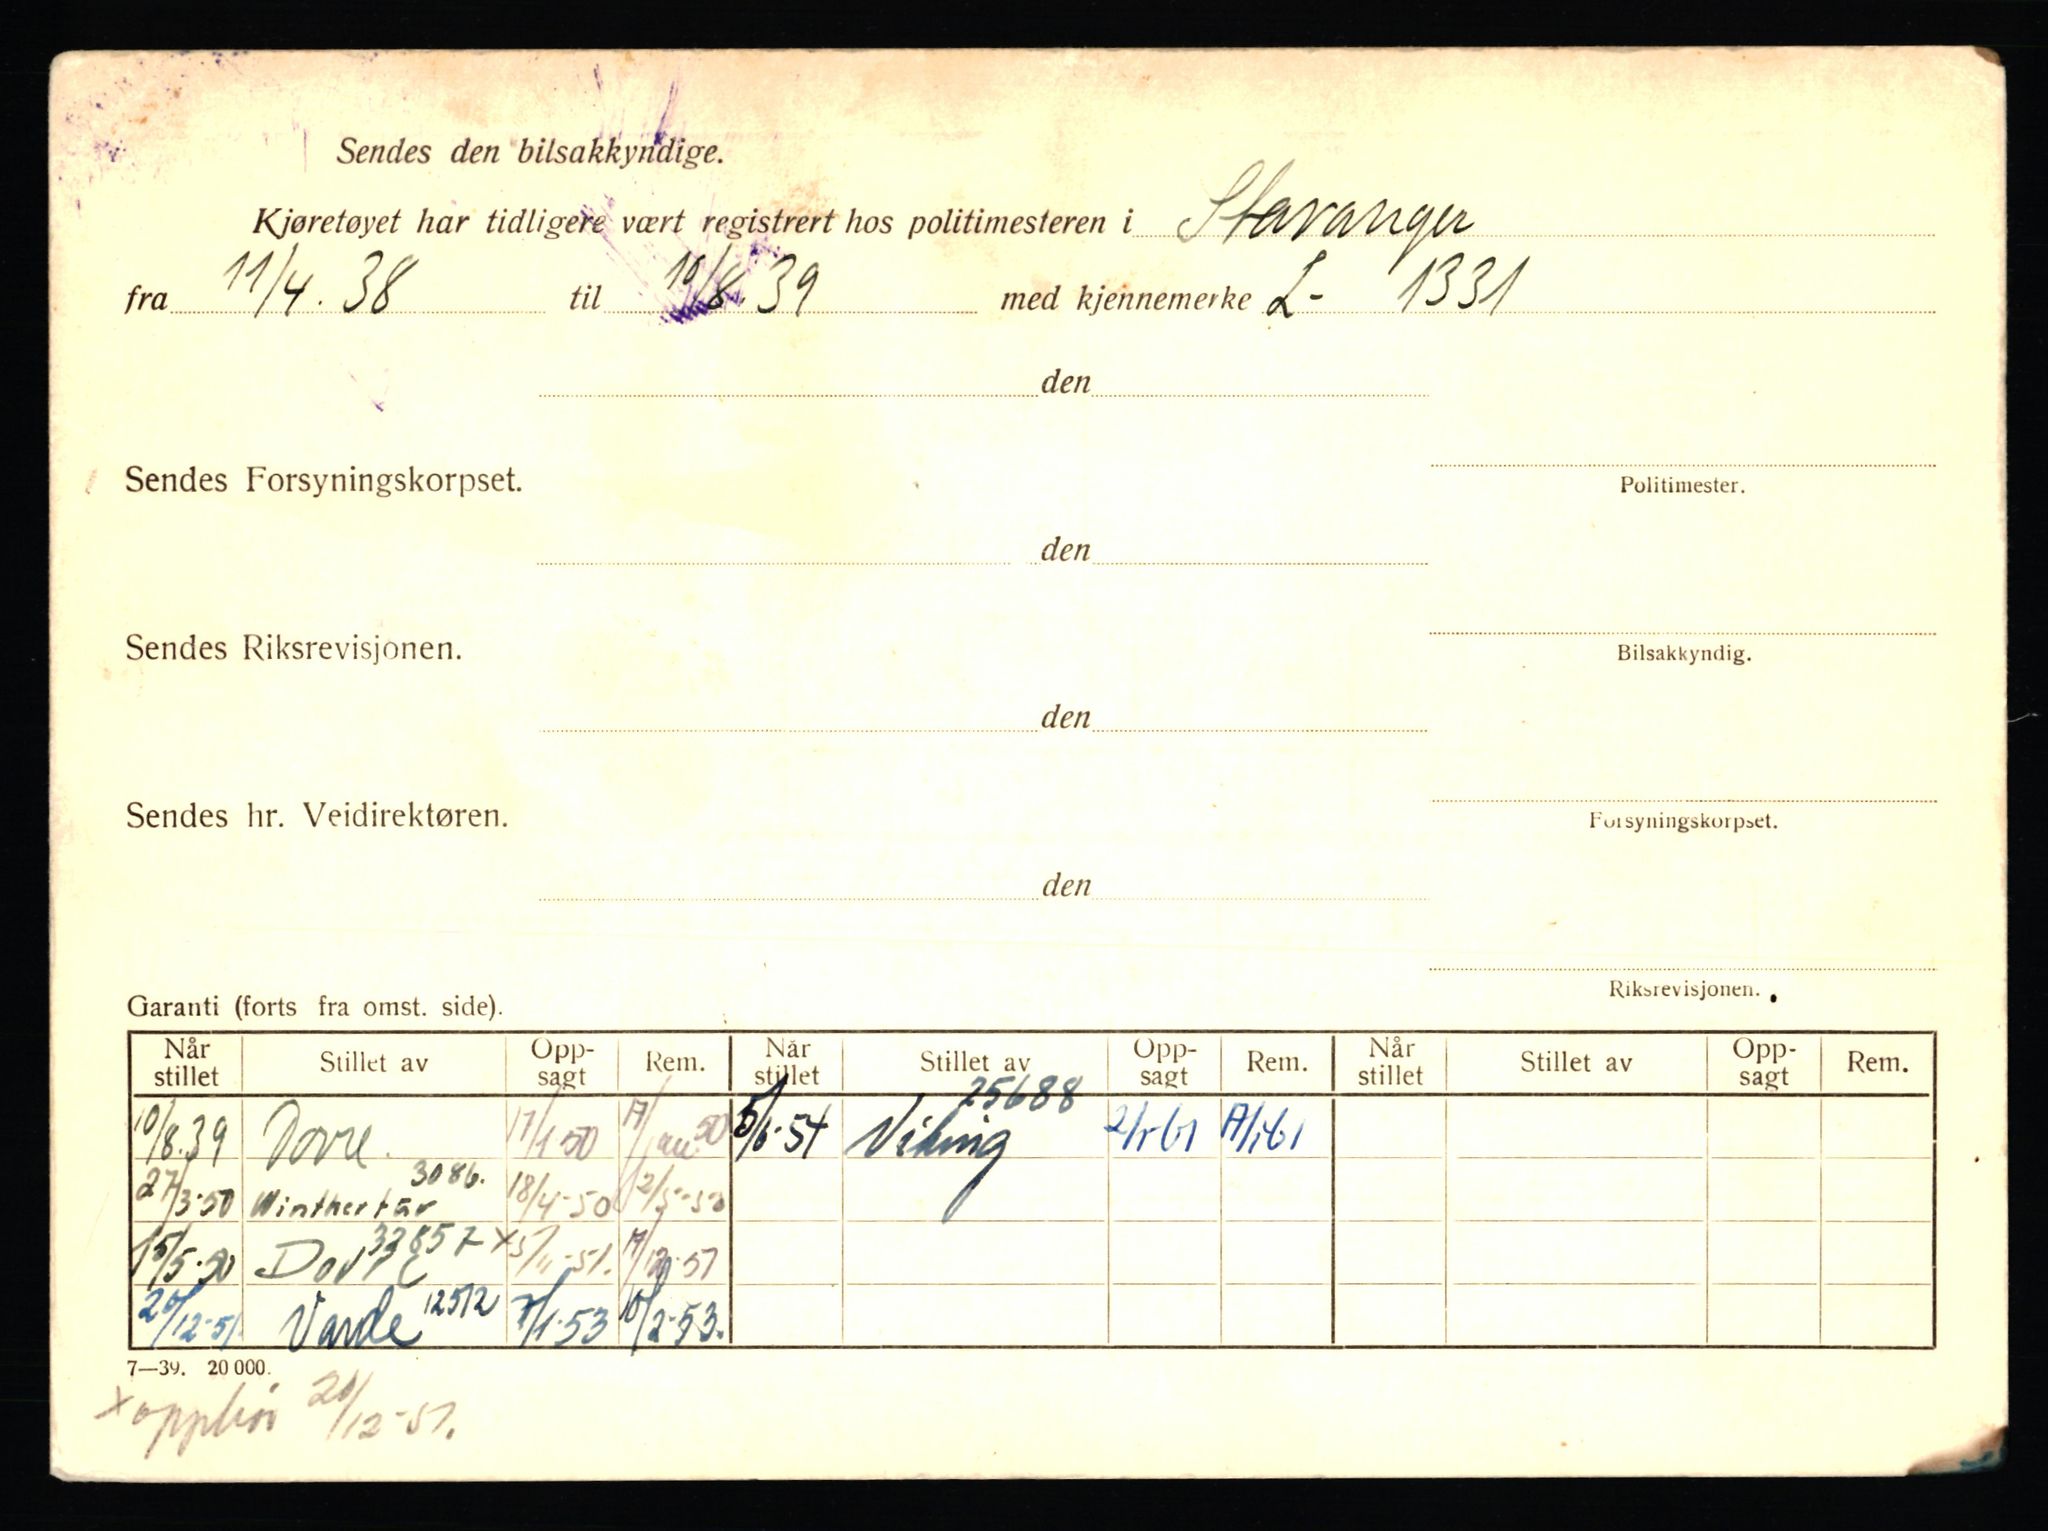 Sendes den bilsakkyndige.
Kjøretøyet har tidligere vært registrert hos politimesteren i Stavanger
fra 11/4. 38 til 10/8. 39 med kjennemerke L- 1331
den
Sendes Forsyningskorpset.
Politimester.
den
Sendes Riksrevisjonen.
Bilsakkyndig.
den
Sendes hr. Veidirektøren.
Forsyningskorpset.
den
Riksrevisjonen.
Garanti (forts fra omst. side).
Når stillet Stillet av Opp-sagt Rem. Når stillet Stillet av Opp-sagt Rem. Når stillet Stillet av Opp-sagt Rem.
10/8.39 Dovre. 17/1-50 17/jan. 50 5/6-54 Viking 25688
27/3-50 Winthertur 3086. 18/4-50 12/5-50
15/5-50 Dovre 33857 x 5/11-51. 17/12-51
20/12-51. Varde 12512 7/1-53 10/2-53.
7—39. 20 000.
x opphør 20/12-51.